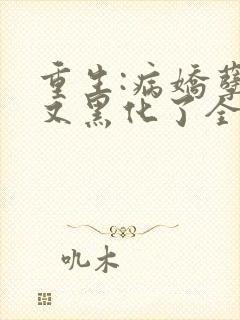 重生:病娇孽
又黑化了全
叽木